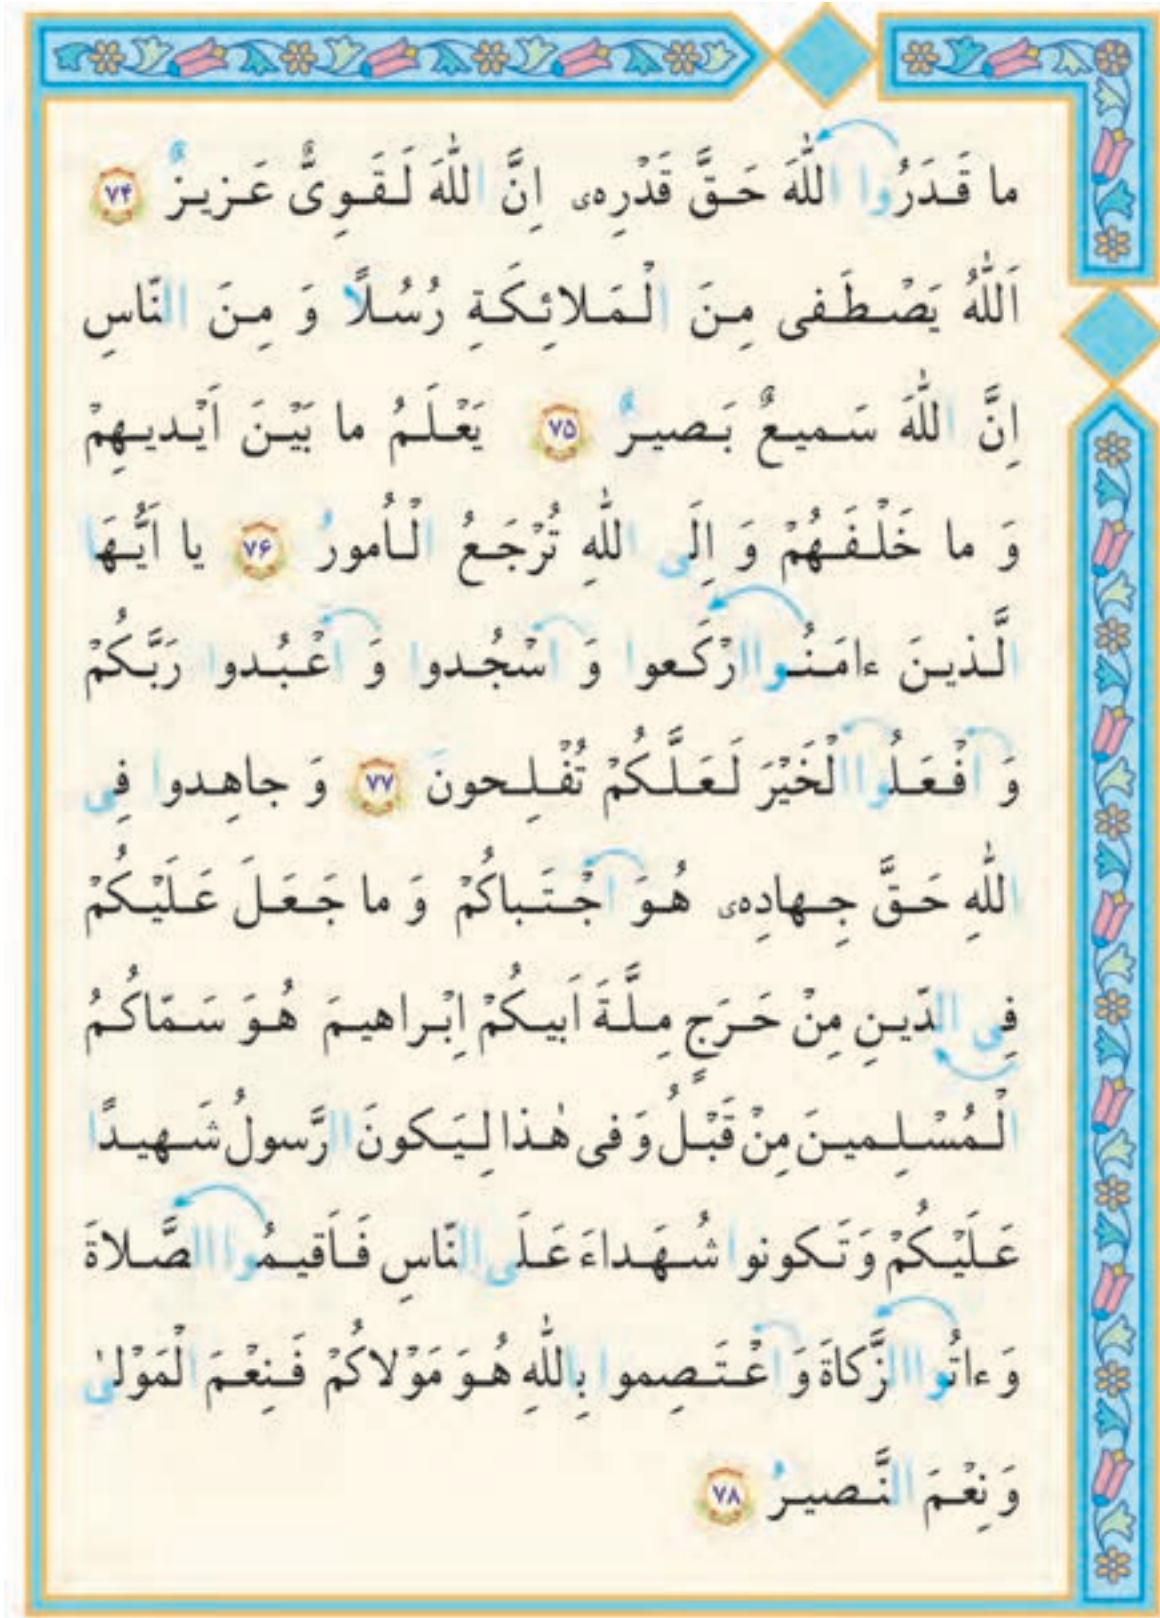 ما قَدَرُوا اللّٰهَ حَقَّ قَدْرِهِى اِنَّ اللّٰهَ لَقَوِىٌّ عَزيزٌ ۷۴
اَللّٰهُ يَصْطَفى مِنَ الْمَلائِكَةِ رُسُلًا وَ مِنَ النّاسِ
اِنَّ اللّٰهَ سَميعٌ بَصيرٌ ۷۵ يَعْلَمُ ما بَيْنَ اَيْديهِمْ
وَ ما خَلْفَهُمْ وَ اِلَى اللّٰهِ تُرْجَعُ الْاُمورُ ۷۶ يا اَيُّهَا
الَّذينَ ءامَنُوا ارْكَعوا وَ اسْجُدوا وَ اعْبُدوا رَبَّكُمْ
وَ افْعَلُوا الْخَيْرَ لَعَلَّكُمْ تُفْلِحونَ ۷۷ وَ جاهِدوا فِى
اللّٰهِ حَقَّ جِهادِهِى هُوَ اجْتَباكُمْ وَ ما جَعَلَ عَلَيْكُمْ
فِى الدّينِ مِنْ حَرَجٍ مِلَّةَ اَبيكُمْ اِبْراهيمَ هُوَ سَمّاكُمُ
الْمُسْلِمينَ مِنْ قَبْلُ وَ فى هٰذا لِيَكونَ الرَّسولُ شَهيدًا
عَلَيْكُمْ وَ تَكونوا شُهَداءَ عَلَى النّاسِ فَاَقيمُوا الصَّلاةَ
وَ ءاتُوا الزَّكاةَ وَ اعْتَصِموا بِاللّٰهِ هُوَ مَوْلاكُمْ فَنِعْمَ الْمَوْلىٰ
وَ نِعْمَ النَّصيرُ ۷۸